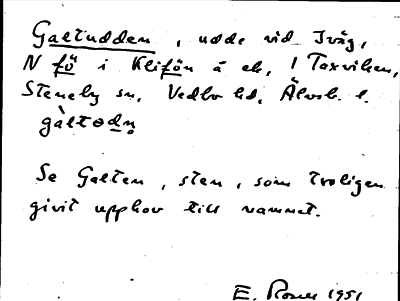 Galtudden, udde vid Iväg,
N fö i Klifön å ek, i Taxviken,
Steneby sn, Vedbo hd, Älvsb. l.
gàltodn̥
Se Galten, sten, som troligen
givit upphov till namnet.
E. Rosell 1951